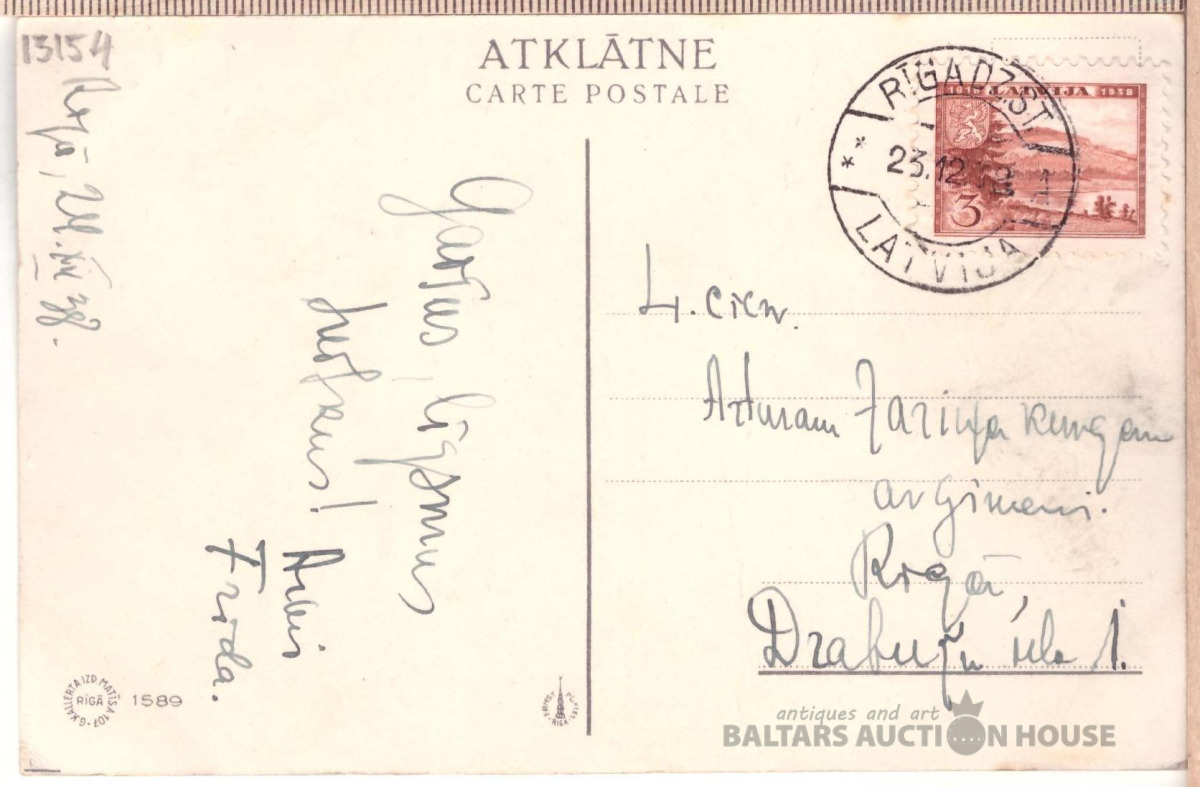 13154
Rīgā, 21.XII 38.
ATKLĀTNE
CARTE POSTALE
1918 LATVIJA 1938
3
RĪGA DZST
23.12.38
LATVIJA
Gaišus, līgsmus
svētkus!
Frīda.
L. cien.
Arturam Zariņa kungam
ar ģimeni.
Rīgā,
Drabuļu iela 1.
G. KALLERTA IZD. MATĪSA 107
RĪGĀ
1589
antiques and art
BALTARS AUCTION HOUSE